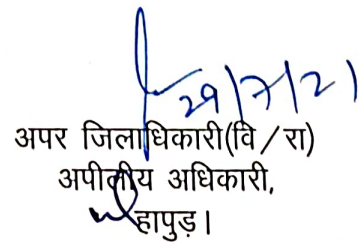 29/7/21
अपर जिलाधिकारी(वि/रा)
अपीलीय अधिकारी,
हापुड़।